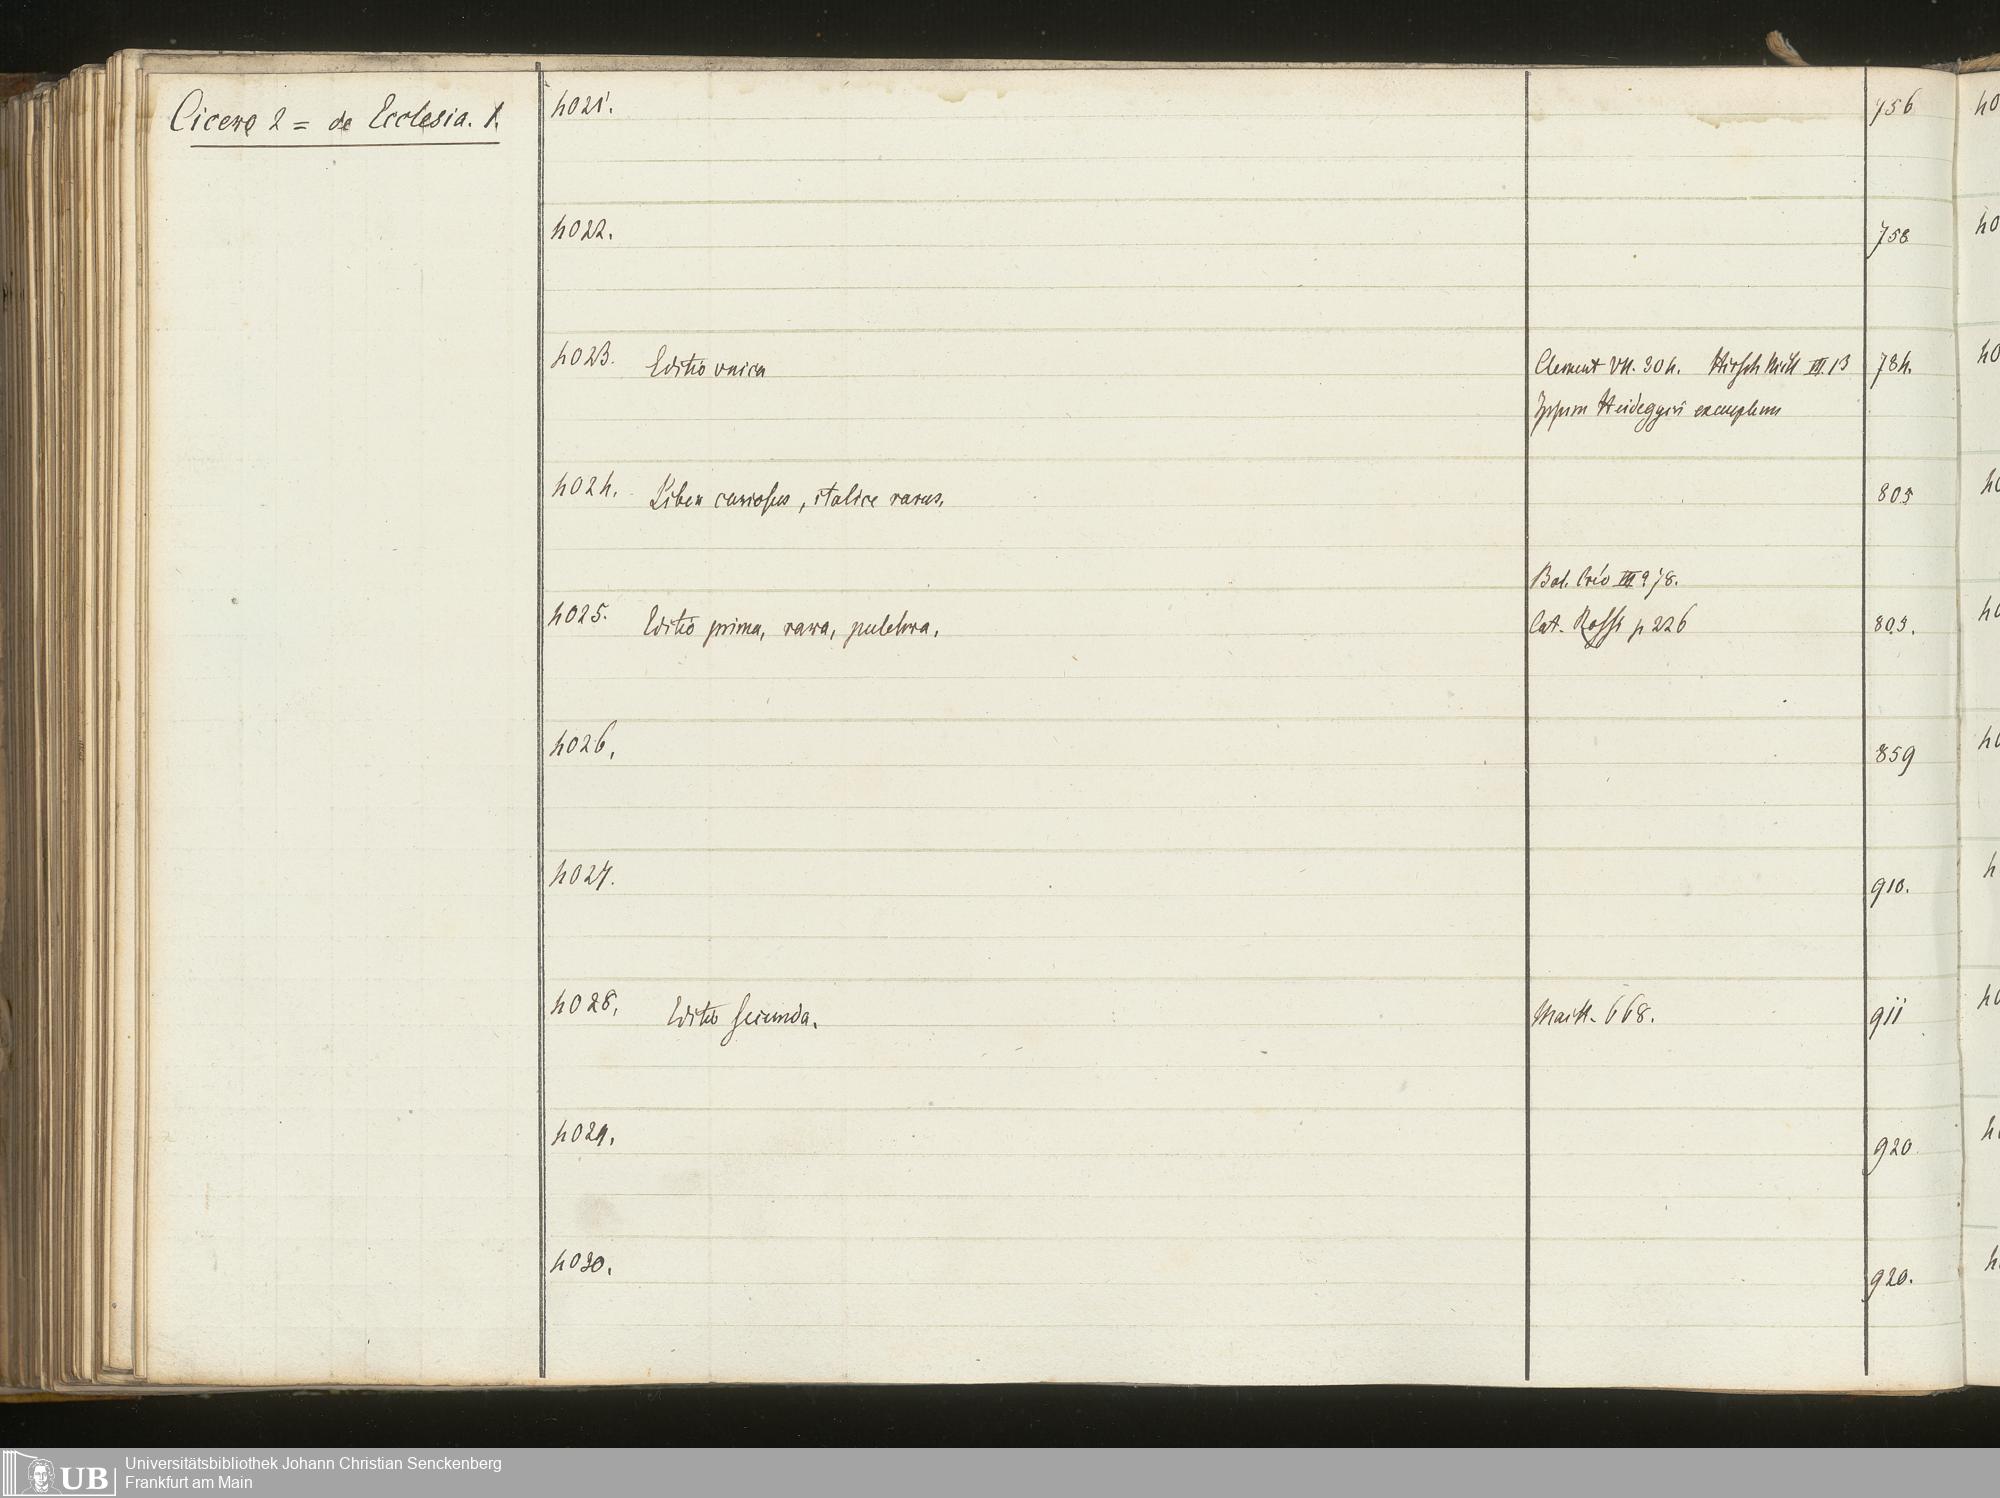 Cicero 2 = de Ecclesia. 1.
4021. 756
4022. 758
4023. Editio unica Clement VII. 304. Hirsch Mill III. 13 784.
Ipsum Heideggeri exemplum
4024. Liber curiosus, italice rarus, 803
Bol. Crio III 978.
4025. Editio prima, rara, pulchra, Cat. Rossi p 226 803.
4026, 859
4027. 910.
4028, Editio secunda. Maitt. 668. 911
4029, 920
4030. 920.
40
40
40
40
40
40
4
40
4
4
UB
Universitätsbibliothek Johann Christian Senckenberg
Frankfurt am Main